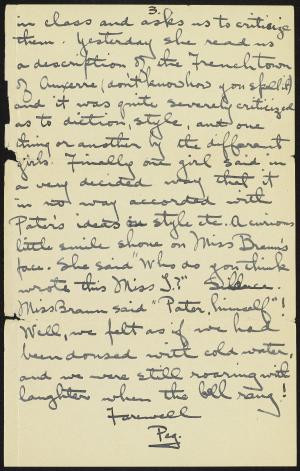 3.
in class and asks us to criticize
them. Yesterday she read us
a description of the French town
of Auxerre (don't know how you spell it)
and it was quite severely criticized
as to diction, style, and one
thing or another by the different
girls. Finally one girl said in
a very decided way that it
in no way accorded with
Pater's ideas in style etc. A curious
little smile shone on Miss Braun's
face. She said "Who do you think
wrote this Miss T.?" Silence.
Miss Braun said "Pater, himself"!
Well, we felt as if we had
been doused with cold water,
and we were still roaring with
laughter when the bell rang!
Farewell
Peg.